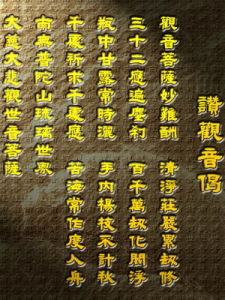 讚觀音偈
觀音菩薩妙難酬
清淨莊嚴累劫修
三十二應遍塵剎
百千萬劫化閻浮
瓶中甘露常時灑
手內楊枝不計秋
千處祈求千處應
苦海常作度人舟
南無普陀山琉璃世界
大慈大悲觀世音菩薩